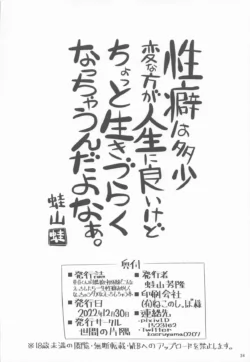 性癖は多少
変な方が人生に良いけど
ちょっと生きづらく
なっちゃうんだよなぁ。
蛙山 蛙
奥付
▶発行誌
▶発行日
2022年12月30日
▶発行サークル
世間の片隅
▶発行者
蛙山芳隆
▶印刷会社
(有)ねこのしっぽ様
▶連絡先
pixivID
Twitter
kaeruyama0207
※18歳未満の閲覧・無断転載・WEBへのアップロードを禁止します。